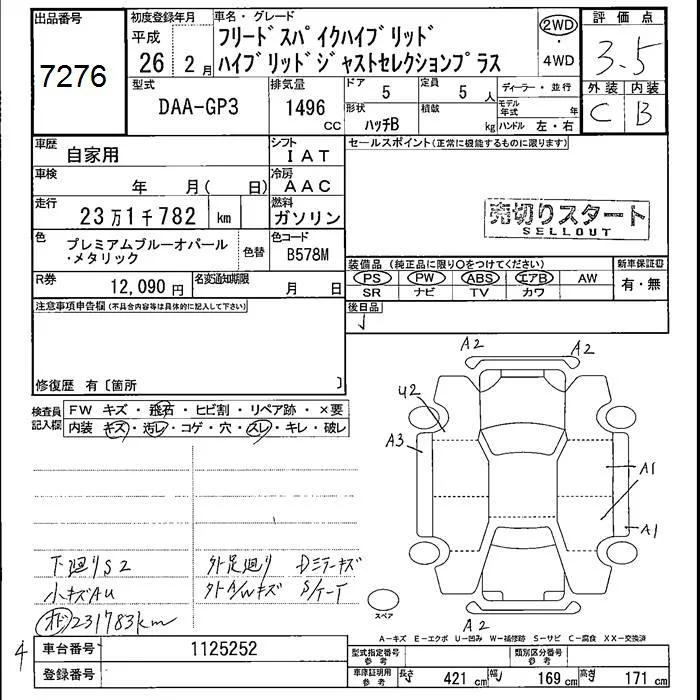 出品番号
7276
初度登録年月
平成
26 2月
車名・グレード
フリードスパイクハイブリッド
ハイブリッドジャストセレクションプラス
2WD
・
4WD
評価点
3.5
外装 内装
C B
型式
DAA-GP3
排気量
1496
CC
ドア 5
定員 5人
形状 ハッチB
積載 kg
ディーラー・並行
モデル年式 年
ハンドル 左・右
車歴 自家用
シフト IAT
車検 年 月( 日)
冷房 AAC
走行 23万1千782 km
燃料 ガソリン
色 プレミアムブルーオパール
・メタリック
色替
色コード B578M
R券 12,090円
名変通知期限 月 日
セールスポイント(正常に機能するものに限ります)
売切りスタート
SELLOUT
装備品(純正品に限り○をつけてください)
PS PW ABS エアB AW
SR ナビ TV カワ
新車保証書
有・無
後日品
注意事項申告欄(不具合内容等は具体的に記入して下さい)
修復歴 有〔箇所 〕
検査員
記入欄
FW キズ・飛石・ヒビ割・リペア跡・×要
内装 キズ・汚レ・コゲ・穴・スレ・キレ・破レ
下廻りS2
小キズAU
オド231783km
外足廻り Dミラーキズ
外A/Wキズ S/T-T
A2
A2
U2
A3
A1
A1
A2
スペア
A-キズ E-エクボ U-凹み W-補修跡 S-サビ C-腐食 XX-交換済
4
車台番号 1125252
登録番号
型式指定番号
参考
類別区分番号
参考
車庫証明用
参考
長さ 421cm 幅 169cm 高さ 171cm